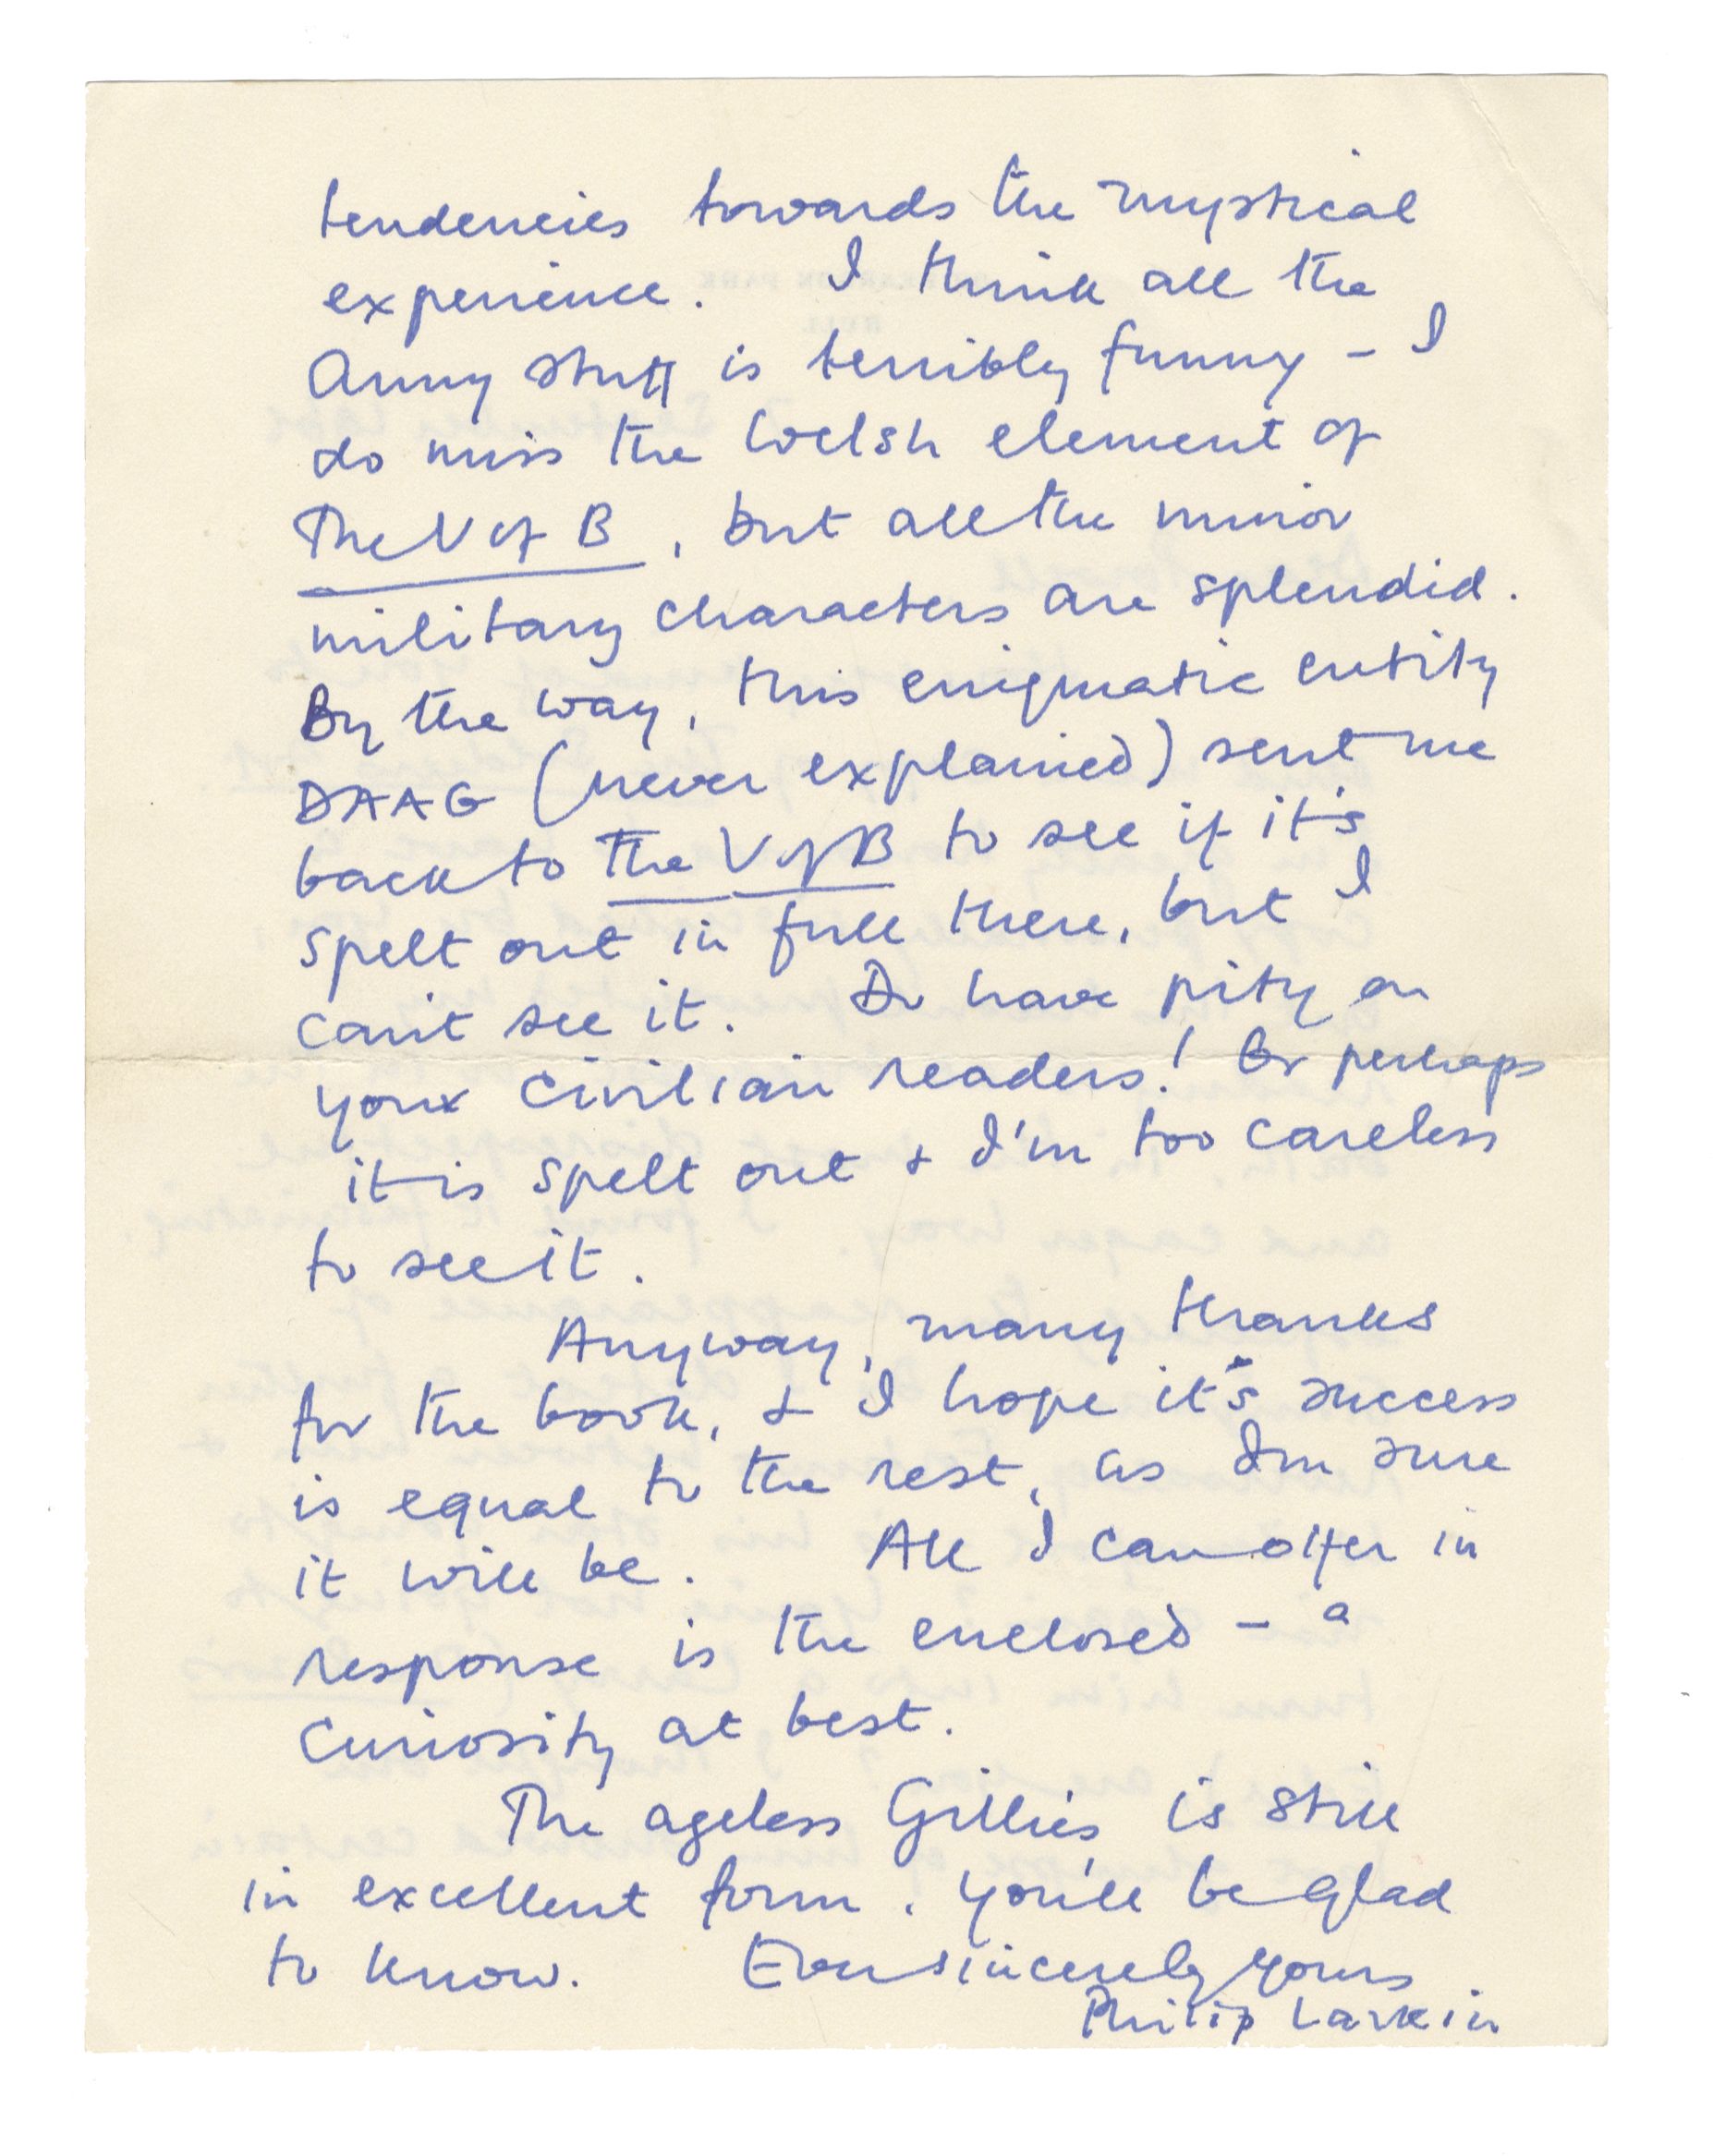 tendencies towards the mystical
experience. I think all the
Army stuff is terribly funny – I
do miss the Welsh element of
The V of B, but all the minor
military characters are splendid.
By the way, this enigmatic entity
DAAG (never explained) sent me
back to The V of B to see if it's
spelt out in full there, but I
can't see it. Do have pity on
your civilian readers! Or perhaps
it is spelt out & I'm too careless
to see it.
Anyway, many thanks
for the book, & I hope it's success
is equal to the rest, as I'm sure
it will be. All I can offer in
response is the enclosed – a
curiosity at best.
The ageless Gillies is still
in excellent form, you'll be glad
to know. Ever sincerely yours
Philip Larkin